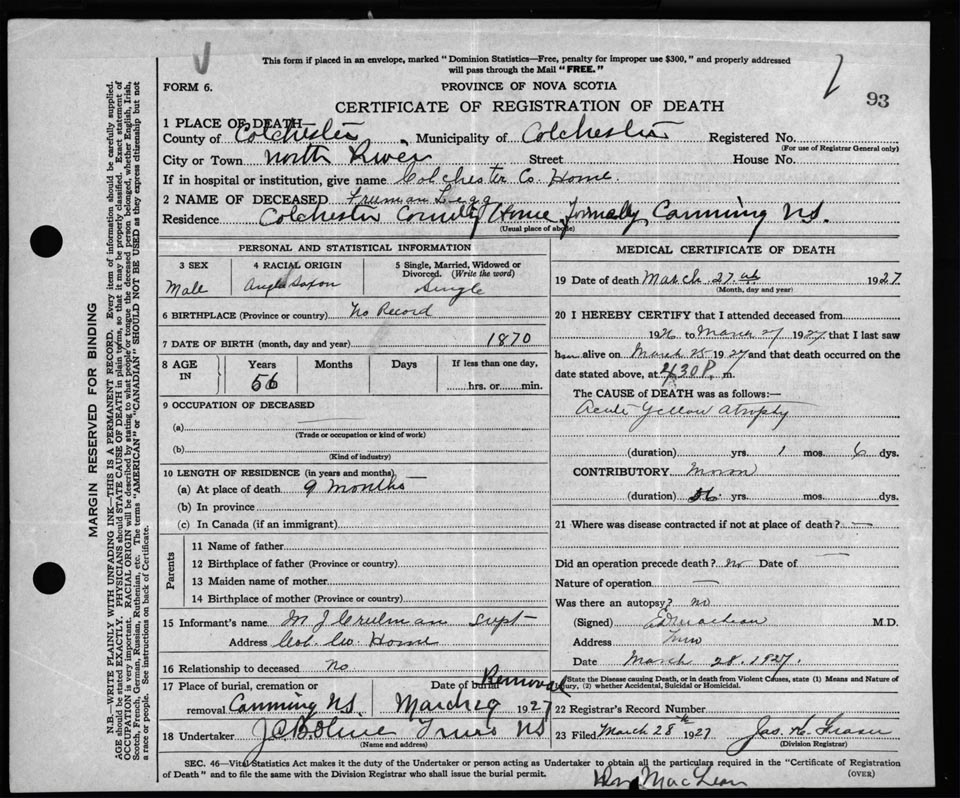 This form if placed in an envelope, marked "Dominion Statistics—Free, penalty for improper use $300," and properly addressed
will pass through the Mail "FREE."
FORM 6.
PROVINCE OF NOVA SCOTIA
93
CERTIFICATE OF REGISTRATION OF DEATH
1 PLACE OF DEATH—
County of Colchester Municipality of Colchester Registered No.
(For use of Registrar General only)
City or Town North River Street House No.
If in hospital or institution, give name Colchester Co. Home
2 NAME OF DECEASED Freeman Legg
Residence Colchester County Home formally Canning N.S.
(Usual place of abode)
PERSONAL AND STATISTICAL INFORMATION
3 SEX 4 RACIAL ORIGIN 5 Single, Married, Widowed or
Divorced. (Write the word)
Male Anglo Saxon Single
6 BIRTHPLACE (Province or country) No Record
7 DATE OF BIRTH (month, day and year) 1870
8 AGE IN Years Months Days If less than one day,
56 hrs. or min.
9 OCCUPATION OF DECEASED
(a)
(Trade or occupation or kind of work)
(b)
(Kind of industry)
10 LENGTH OF RESIDENCE (in years and months)
(a) At place of death 9 months
(b) In province
(c) In Canada (if an immigrant)
Parents
11 Name of father
12 Birthplace of father (Province or country)
13 Maiden name of mother
14 Birthplace of mother (Province or country)
15 Informant's name M J Supt
Address Col. Co. Home
16 Relationship to deceased No
17 Place of burial, cremation or Date of burial Removal
removal Canning N.S. March 29 1927
18 Undertaker Truro N.S
(Name and address)
MEDICAL CERTIFICATE OF DEATH
19 Date of death March 27 th 1927
(Month, day and year)
20 I HEREBY CERTIFY that I attended deceased from
1926 to March 27 1927 that I last saw
h alive on March 25 1927 and that death occurred on
date stated above, at 30 P. m.
The CAUSE of DEATH was as follows:—
Acute Yellow atrophy
(duration) yrs. 1 mos. 6 dys.
CONTRIBUTORY Moron
(duration) 56 yrs. mos. dys.
21 Where was disease contracted if not at place of death? —
Did an operation precede death? No Date of —
Nature of operation —
Was there an autopsy? no
(Signed) M.D.
Address Truro
Date March 28. 1927.
State the Disease causing Death, or in death from Violent Causes, state (1) Means and Nature of
Injury, (2) whether Accidental, Suicidal or Homicidal.
22 Registrar's Record Number
23 Filed March 28th 1927 Jas. Fraser
(Division Registrar)
SEC. 46—Vital Statistics Act makes it the duty of the Undertaker or person acting as Undertaker to obtain all the particulars required in the "Certificate of Registration
of Death" and to file the same with the Division Registrar who shall issue the burial permit. (OVER)
MacLean
MARGIN RESERVED FOR BINDING
N.B.—WRITE PLAINLY WITH UNFADING INK—THIS IS A PERMANENT RECORD. Every item of information should be carefully supplied.
AGE should be stated EXACTLY. PHYSICIANS should STATE CAUSE OF DEATH in plain terms, so that it may be properly classified. Exact statement of
OCCUPATION is very important. RACIAL ORIGIN will be described by stating to what people or tongue the deceased person belonged, whether English, Irish,
Scotch, French, German, Russian, Ruthenian, etc. The terms "AMERICAN" or "CANADIAN" SHOULD NOT BE USED as they express citizenship but not
a race or people. See instructions on back of Certificate.